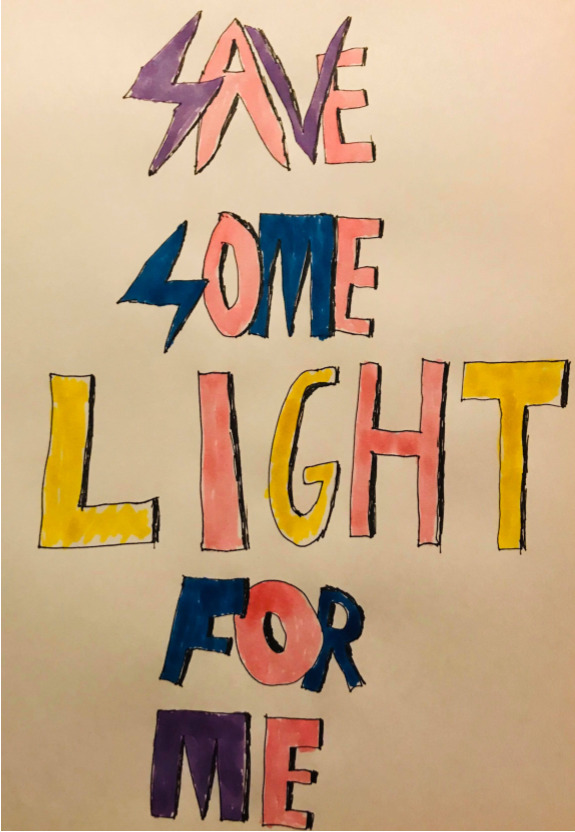 SAVE
SOME
LIGHT
FOR
ME